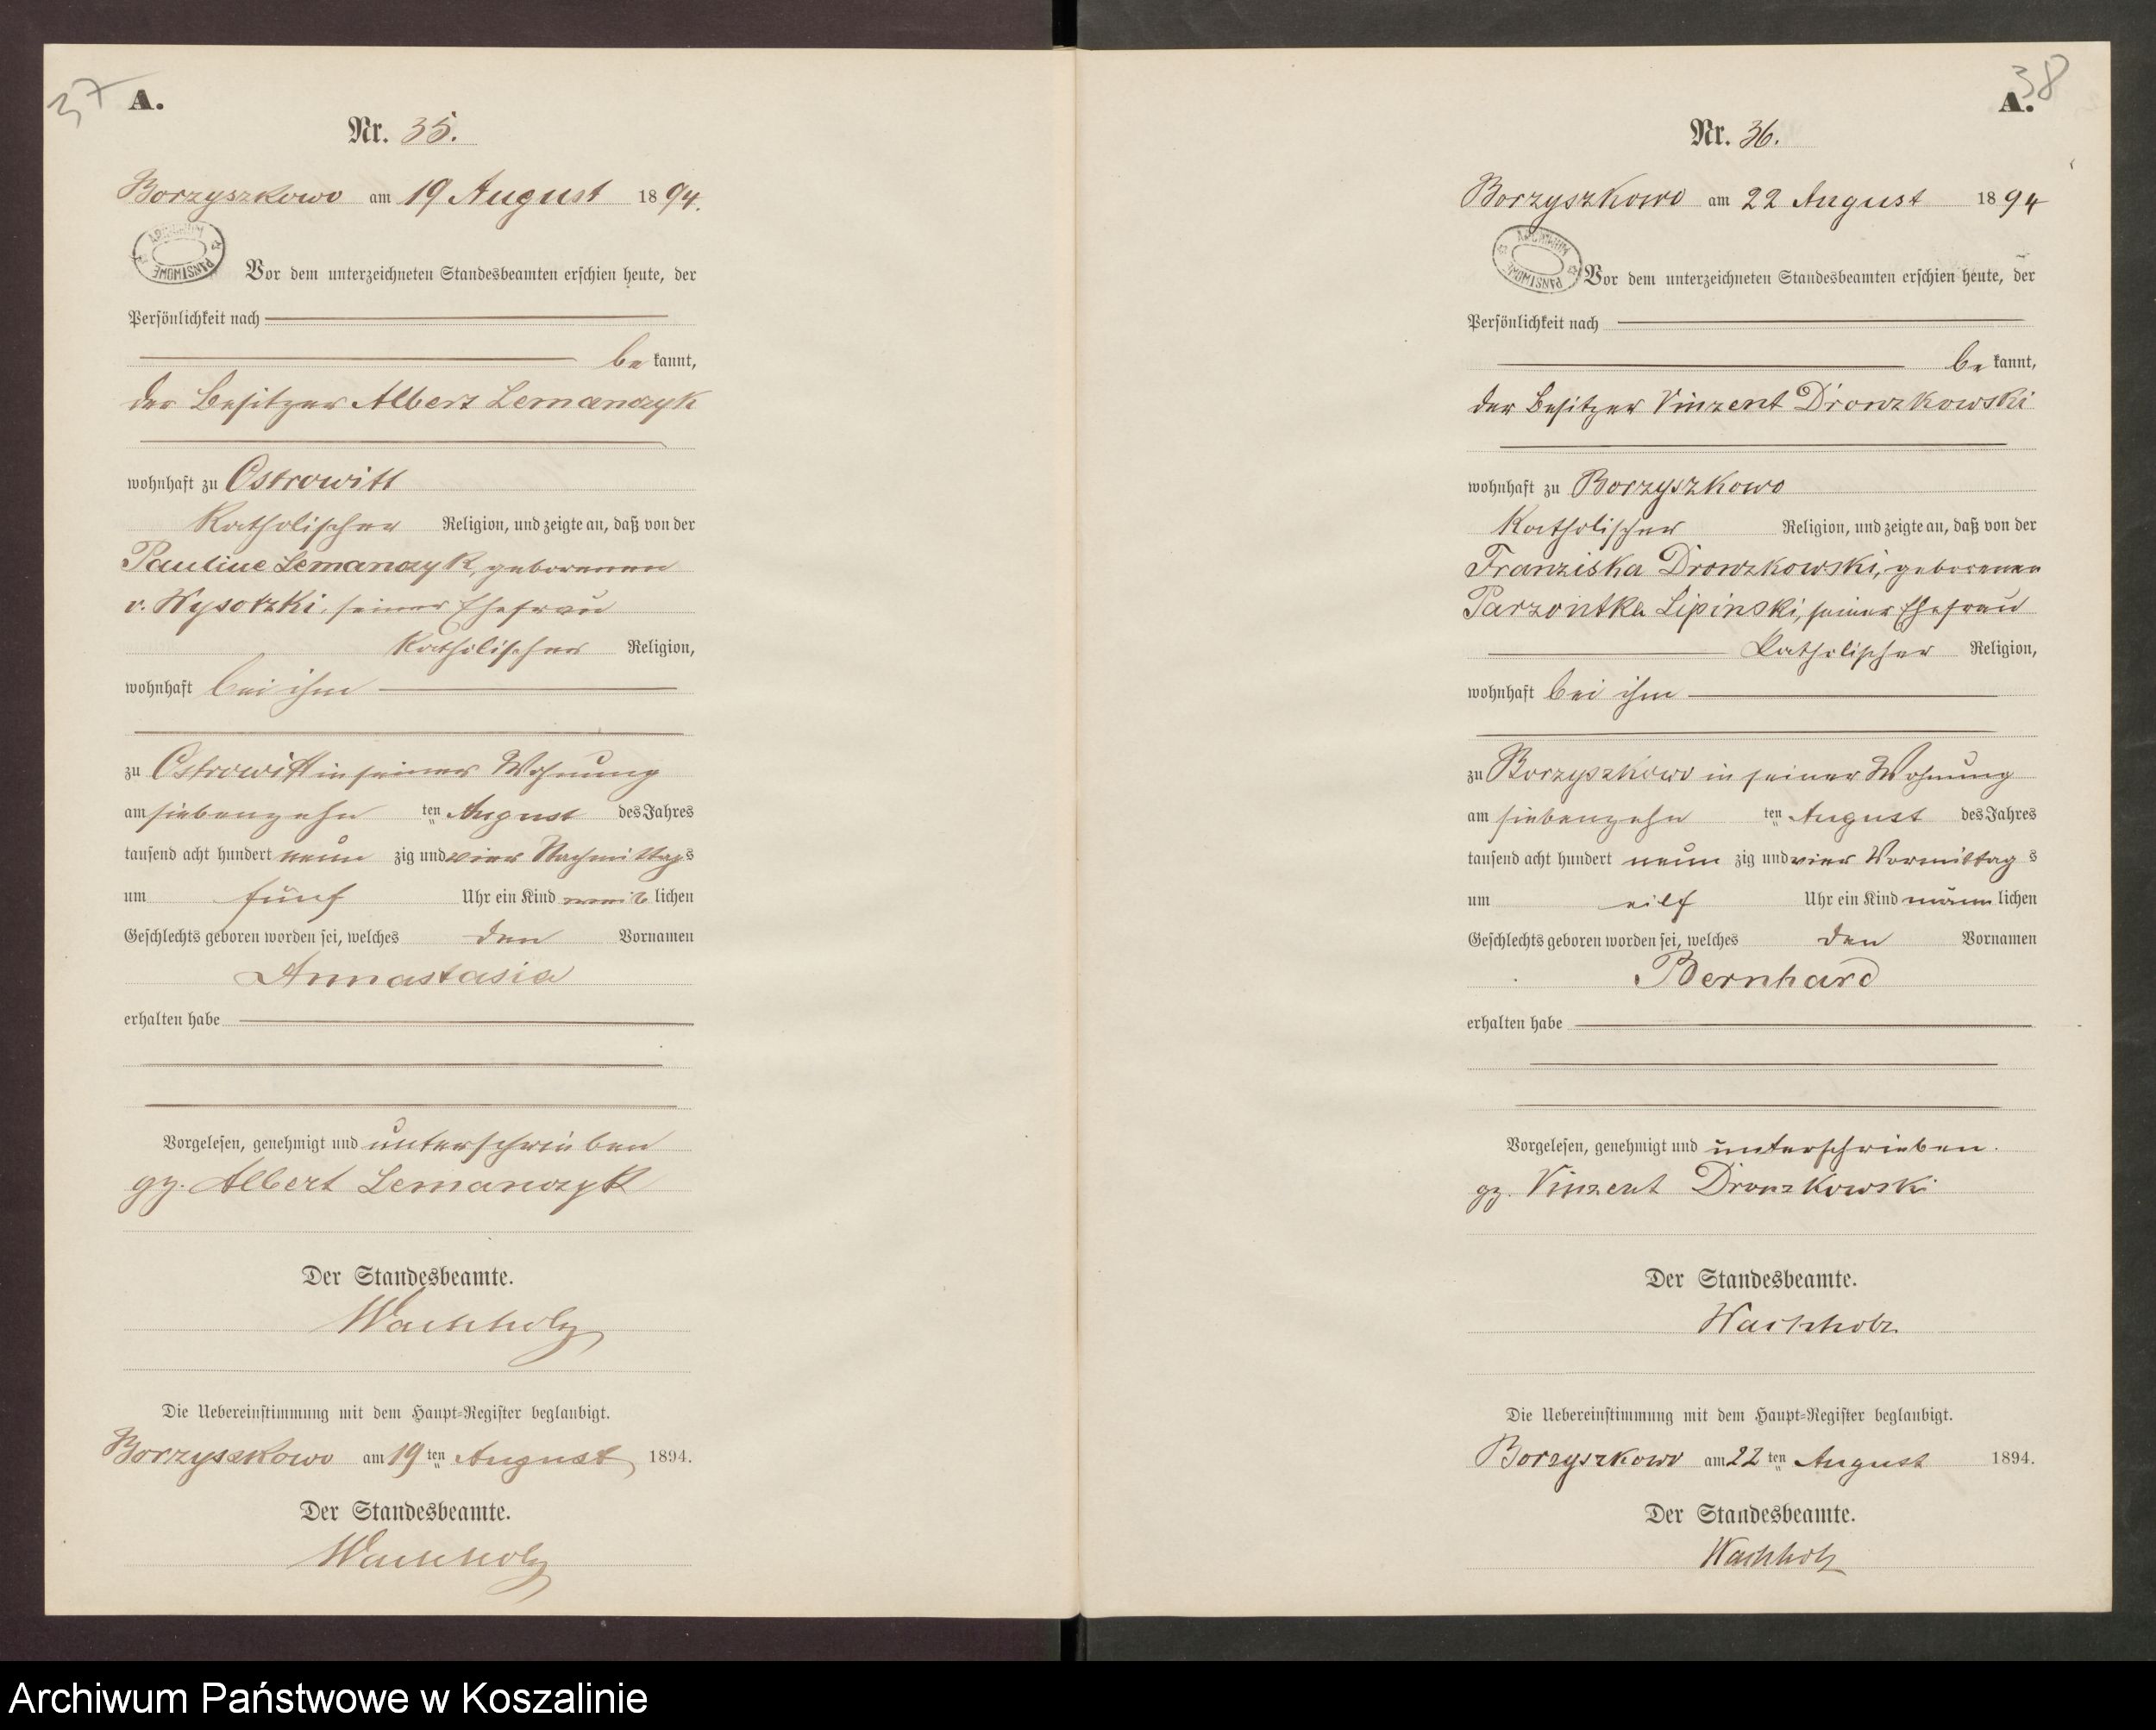 37
A.
Nr. 35.
Borzyszkowo am 19 August 1894.
ARCHIWUM PAŃSTWOWE
Vor dem unterzeichneten Standesbeamten erschien heute, der
Persönlichkeit nach
bekannt,
der Besitzer Albert Lemanczyk
wohnhaft zu Ostrowitt
Katholischer Religion, und zeigte an, daß von der
Pauline Lemanczyk, geborenen
v. Wysotzki, seiner Ehefrau
Katholischer Religion,
wohnhaft bei ihm
zu Ostrowitt in seiner Wohnung
am siebenzehn ten August des Jahres
tausend acht hundert neun zig und vier Nachmittags
um fünf Uhr ein Kind weiblichen
Geschlechts geboren worden sei, welches den Vornamen
Annastasia
erhalten habe
Vorgelesen, genehmigt und unterschrieben
gz. Albert Lemanczyk
Der Standesbeamte.
Wachholz
Die Uebereinstimmung mit dem Haupt-Register beglaubigt.
Borzyszkowo am 19ten August 1894.
Der Standesbeamte.
Wachholz
38
A.
Nr. 36.
Borzyszkowo am 22 August 1894
ARCHIWUM PAŃSTWOWE
Vor dem unterzeichneten Standesbeamten erschien heute, der
Persönlichkeit nach
bekannt,
der Besitzer Vinzent Dronzkowski
wohnhaft zu Borzyszkowo
Katholischer Religion, und zeigte an, daß von der
Franziska Dronzkowski, geborenen
Parzontka Lipinski, seiner Ehefrau
Katholischer Religion,
wohnhaft bei ihm
zu Borzyszkowo in seiner Wohnung
am siebenzehn ten August des Jahres
tausend acht hundert neun zig und vier Vormittag s
um eilf Uhr ein Kind männlichen
Geschlechts geboren worden sei, welches den Vornamen
Bernhard
erhalten habe
Vorgelesen, genehmigt und unterschrieben.
gz. Vinzent Dronzkowski
Der Standesbeamte.
Wachholz
Die Uebereinstimmung mit dem Haupt-Register beglaubigt.
Borzyszkowo am 22ten August 1894.
Der Standesbeamte.
Wachholz
Archiwum Państwowe w Koszalinie